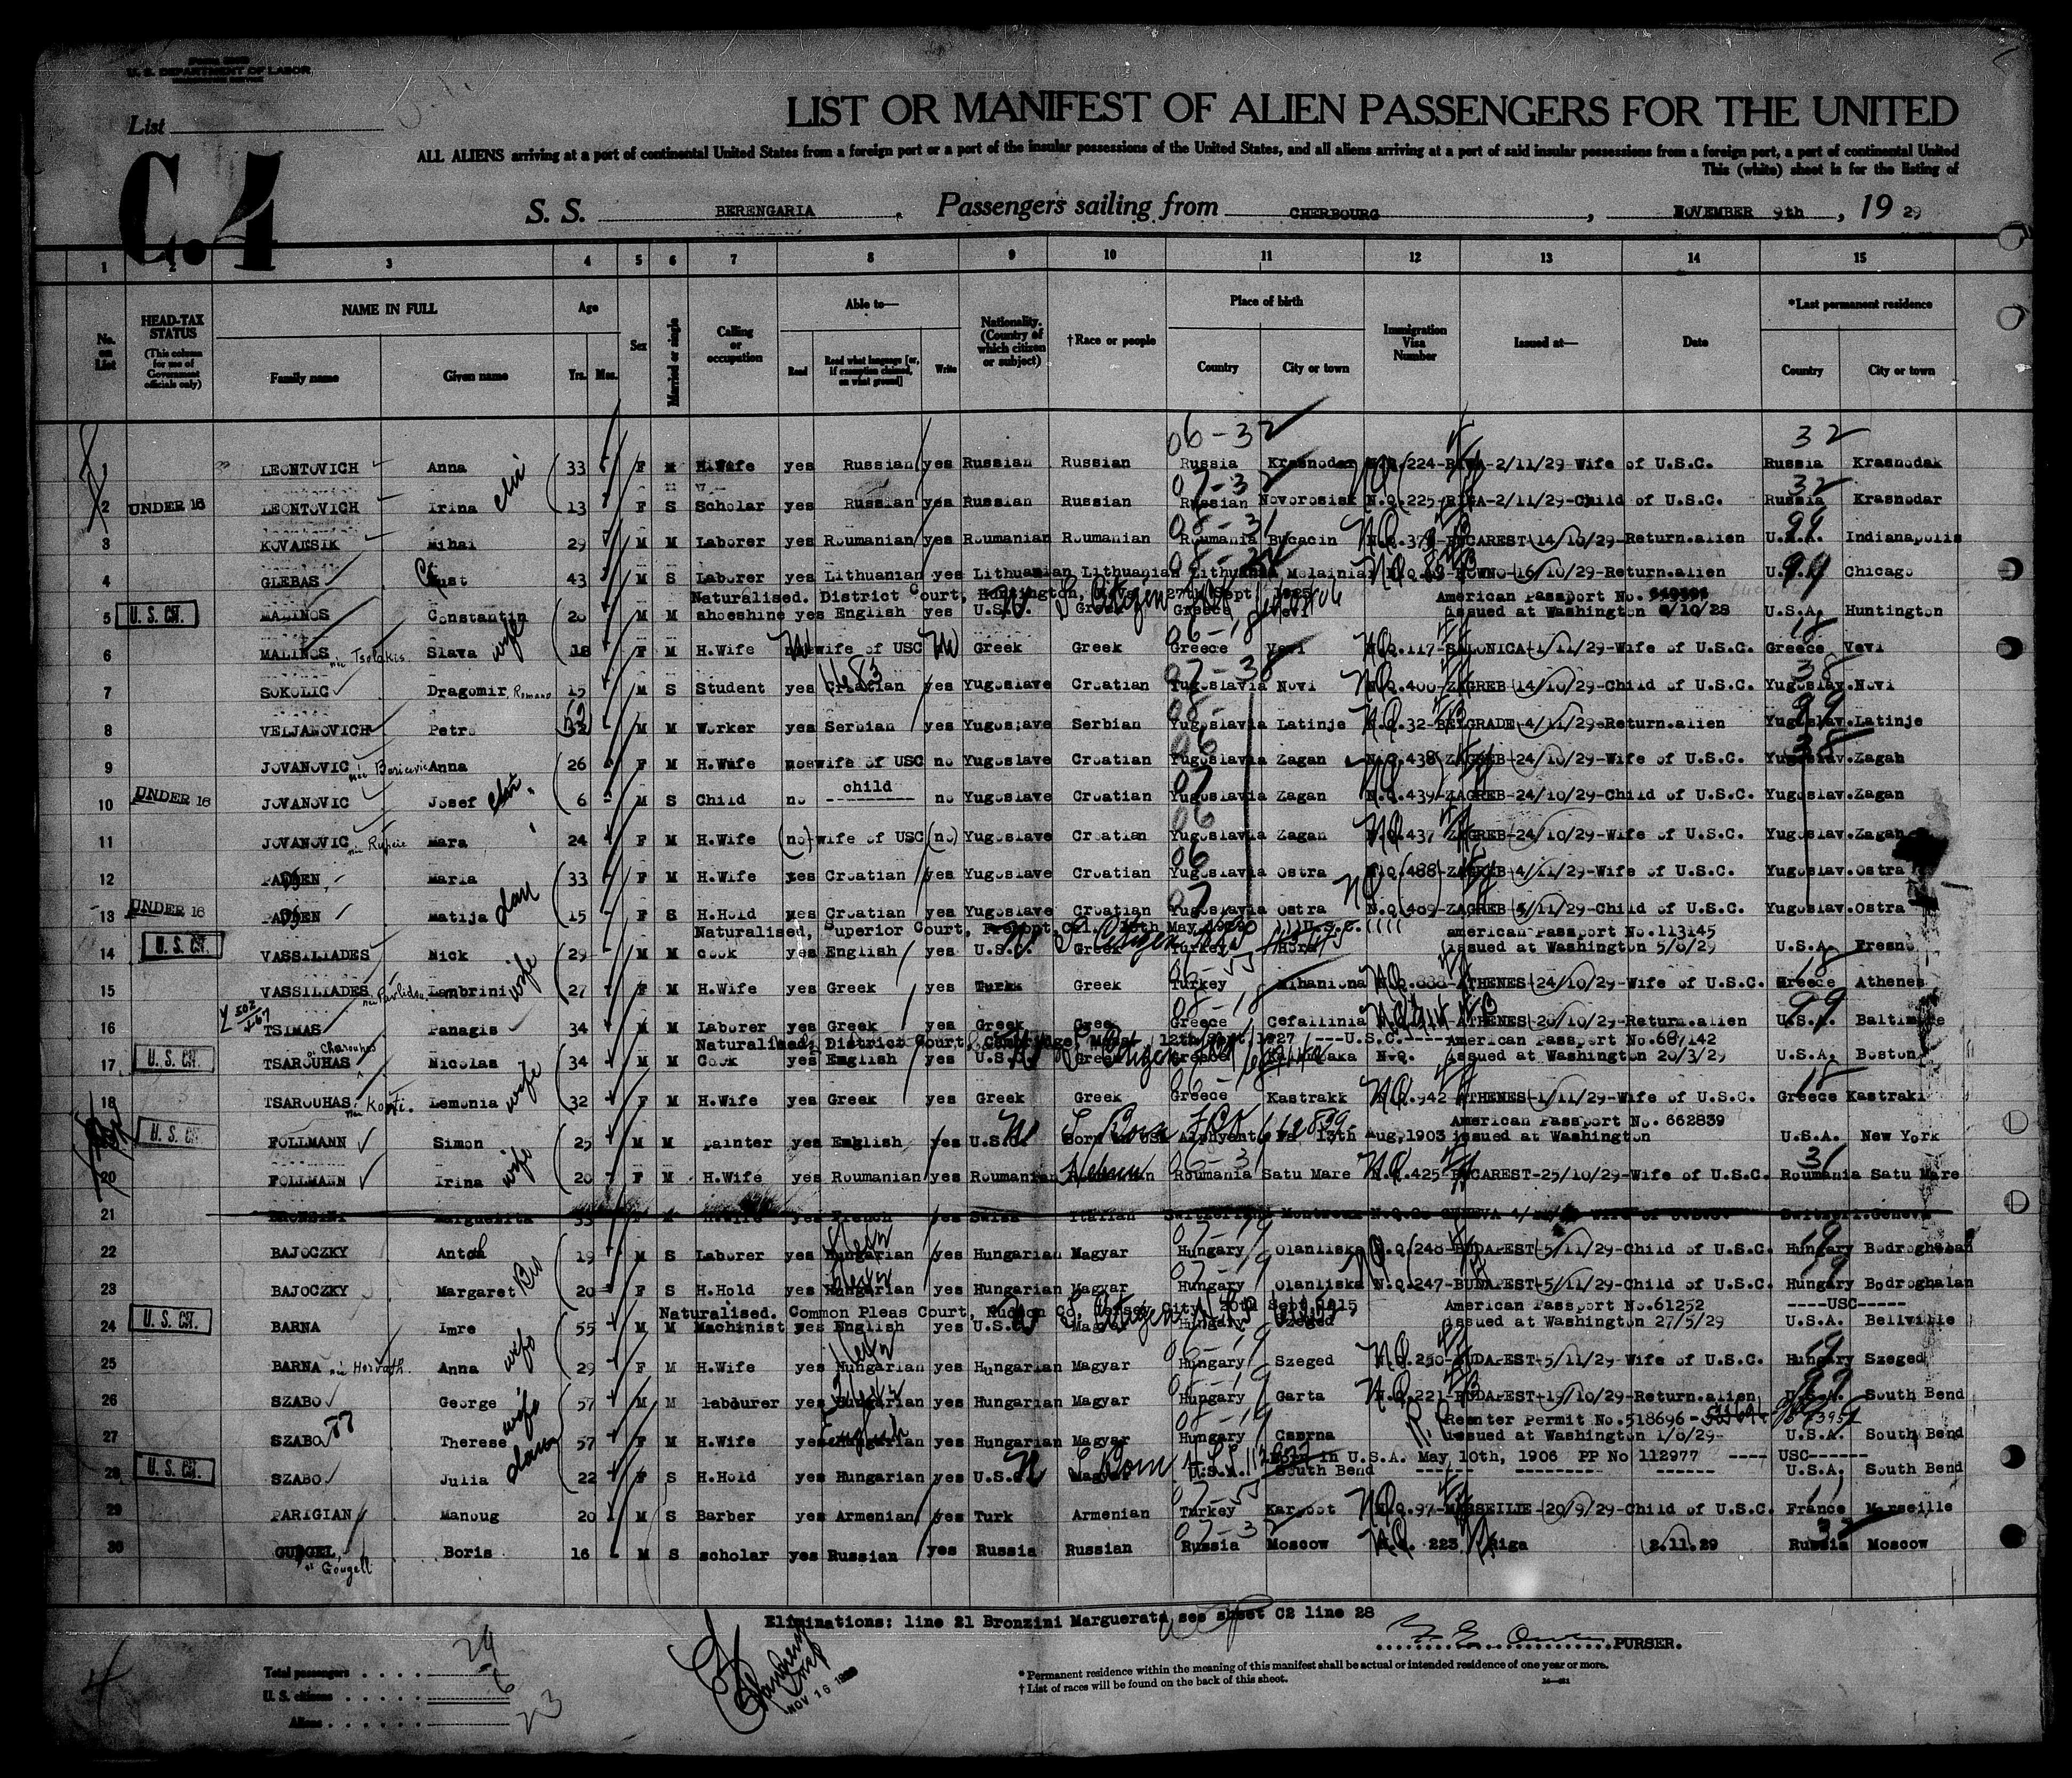 U. S. DEPARTMENT OF LABOR
List
C.4
LIST OR MANIFEST OF ALIEN PASSENGERS FOR THE UNITED
ALL ALIENS arriving at a port of continental United States from a foreign port or a port of the insular possessions of the United States, and all aliens arriving at a port of said insular possessions from a foreign port, a port of continental United
This (white) sheet is for the listing of
S. S. BERENGARIA, Passengers sailing from CHERBOURG, NOVEMBER 9th, 19 29
1 2 3 4 5 6 7 8 9 10 11 12 13 14 15
No. on List HEAD-TAX STATUS (This column for use of Government officials only) NAME IN FULL Family name Given name Age Yrs. Mos. Sex Married or single Calling or occupation Able to— Read Read what language [or, if exemption claimed, on what ground] Write Nationality. (Country of which citizen or subject) †Race or people Place of birth Country City or town Immigration Visa Number Issued at— Date *Last permanent residence Country City or town
06-32 32
1 LEONTOVICH Anna 33 F M H.Wife yes Russian yes Russian Russian Russia Krasnodar N.Q.224-RIGA-2/11/29-Wife of U.S.C. Russia Krasnodak
07-32 32
2 UNDER 16 LEONTOVICH Irina 13 F S Scholar yes Russian yes Russian Russian Russian Novorosisk N.Q.225-RIGA-2/11/29-Child of U.S.C. Russia Krasnodar
08-31 99
3 KOVAKSIK Mihai 29 M M Laborer yes Roumanian yes Roumanian Roumanian Roumania Bucacin BUCAREST-14/10/29-Return.alien U.S.A. Indianapolis
4 GLEBAS 43 M S Laborer yes Lithuanian yes Lithuanian Lithuanian Lithuania KOWNO-16/10/29-Return.alien Chicago
Naturalised. District Court, Huntington, 27th Sept. 1925 American Passport No.
5 U. S. CIT. MALINOS Constantin M M shoeshine yes English yes U.S.C. Greek Greece Vevi issued at Washington /10/28 U.S.A. Huntington
06-18 18
6 MALINOS née Tsolakis Slava wife 18 F M H.Wife wife of USC Greek Greek Greece Vevi N.Q.117-SALONICA-1/11/29-Wife of U.S.C. Greece Vevi
07-38 38
7 SOKOLIC Dragomir 15 M S Student yes Croatian yes Yugoslave Croatian Yugoslavia Novi N.Q.400-ZAGREB-14/10/29-Child of U.S.C. Yugoslav.Novi
8 VELJANOVICH Petro M M Worker yes Serbian yes Yugos;ave Serbian Yugoslavia Latinje N.Q.32-BELGRADE-4/11/29-Return.alien Yugoslav.Latinje
06 38
9 JOVANOVIC Anna 26 F M H.Wife no wife of USC no Yugoslave Croatian Yugoslavia Zagan N.Q.438-ZAGREB-24/10/29-Wife of U.S.C. Yugoslav.Zagan
07
10 UNDER 16 JOVANOVIC Josef 6 M S Child no child no Yugoslave Croatian Yugoslavia Zagan N.Q.439-ZAGREB-24/10/29-Child of U.S.C. Yugoslav.Zagan
06
11 JOVANOVIC Mara 24 F M H.Wife (no) wife of USC (no) Yugoslave Croatian Yugoslavia Zagan N.Q.437-ZAGREB-24/10/29-Wife of U.S.C. Yugoslav.Zagan
06
12 Maria 33 F M H.Wife yes Croatian yes Yugoslave Croatian Yugoslavia Ostra N.Q.488-ZAGREB-4/11/29-Wife of U.S.C. Yugoslav.Ostra
07
13 UNDER 16 Matija 15 F S H.Hold yes Croatian yes Yugoslave Croatian Yugoslavia Ostra N.Q.489-ZAGREB-5/11/29-Child of U.S.C. Yugoslav.Ostra
Naturalised, Superior Court, U.S.C. american Passport No.113145
14 U. S. CIT. VASSILIADES Nick 29 M M cook yes English yes U.S.C. Greek Turkey issued at Washington 5/8/29 U.S.A. Fresno
06-55 18
15 VASSILIADES Lambrini wife 27 F M H.Wife yes Greek yes Greek Turkey Mihaniona N.Q.888-ATHENES-24/10/29-Wife of U.S.C. Greece Athenes
08-18 99
16 TSIMAS Panagis 34 M M Laborer yes Greek yes Greek Greek Greece Cefallinia ATHENES-20/10/29-Return.alien U.S.A. Baltimore
Naturalised, District Court, Cambridge, 12th 1927 ---U.S.C.---- American Passport No.687142
17 U. S. CIT. TSAROUHAS Nicolas 34 M M Cook yes English yes U.S.C. Greek Greece N.Q. issued at Washington 20/3/29 U.S.A. Boston
18
18 TSAROUHAS Lemonia wife 32 F M H.Wife yes Greek yes Greek Greek Greece Kastrakk N.Q.942 ATHENES-1/11/29-Wife of U.S.C. Greece Kastraki
American Passport No. 662839
U. S. CIT. FOLLMANN Simon 25 M M painter yes English yes U.S.C. Born in USA 13th Aug,1903 issued at Washington U.S.A. New York
06-31 31
20 FOLLMANN Irina wife 20 F M H.Wife yes Roumanian yes Roumanian Hebrew Roumania Satu Mare N.Q.425-BUCAREST-25/10/29-Wife of U.S.C. Roumania Satu Mare
21 BRONZINI Marguerita 33 F M H.Wife yes French yes Swiss Italian Switzerland Montreux
07-19 19
22 BAJOCZKY 19 M S Laborer yes Hungarian yes Hungarian Magyar Hungary Olanliska N.Q.248-BUDAPEST-5/11/29-Child of U.S.C. Hungary Bodroghalan
07-19
23 BAJOCZKY Margaret 20 F S H.Hold yes Hungarian yes Hungarian Magyar Hungary Olanliska N.Q.247-BUDAPEST-5/11/29-Child of U.S.C. Hungary Bodroghalan
Naturalised. Common Pleas Court, Hudson Co, Jersey City, 20th Sept 1915 American Passport No.61252 ----USC-----
24 U. S. CIT. BARNA Imre 55 M M Machinist yes English yes U.S.C. Magyar Hungary Szeged issued at Washington 27/5/29 U.S.A. Bellville
06-19 19
25 BARNA née Horvath. Anna wife 29 F M H.Wife yes Hungarian yes Hungarian Magyar Hungary Szeged N.Q.250-BUDAPEST-5/11/29-Wife of U.S.C. Hungary Szeged
08-19 99
26 SZABO George 57 M M labourer yes Hungarian yes Hungarian Magyar Hungary Garta N.Q.221-BUDAPEST-19/10/29-Return.alien U.S.A. South Bend
08-19 Reenter Permit No.518696
27 SZABO Therese wife 57 F M H.Wife yes Hungarian yes Hungarian Magyar Hungary Csorna issued at Washington 1/8/29- U.S.A. South Bend
Born in U.S.A. May 10th, 1906 PP No 112977 ---- USC------
28 U. S. CIT. SZABO Julia 22 F S H.Hold yes Hungarian yes U.S.C. Magyar U.S.A. South Bend ------ --------- ------ U.S.A. South Bend
07-55 11
29 PARIGIAN Manoug 20 M S Barber yes Armenian yes Turk Armenian Turkey N.Q.97-MARSEILLE-20/9/29-Child of U.S.C. France Marseille
07-32 32
30 Boris 16 M S scholar yes Russian yes Russia Russian Russia Moscow N.Q. 223 Riga 2.11.29 Russia Moscow
Gougell
Eliminations: line 21 Bronzini Marguerata see sheet C2 line 28
PURSER.
Total passengers 29
U. S. citizens 6
Aliens 23
NOV 16 1929
* Permanent residence within the meaning of this manifest shall be actual or intended residence of one year or more.
† List of races will be found on the back of this sheet.